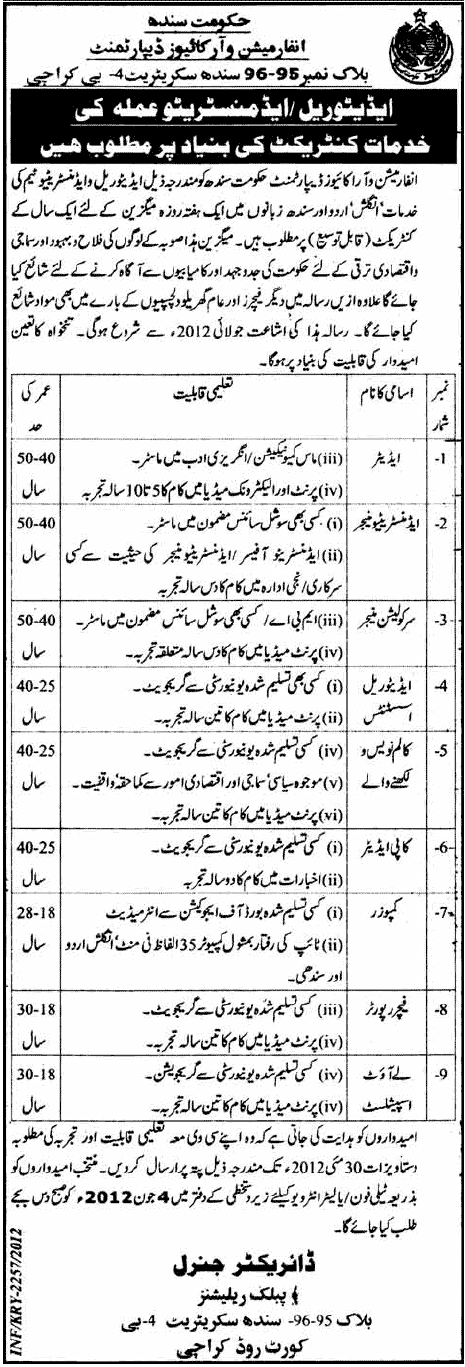 حکومت سندھ
انفارمیشن و آرکائیوز ڈیپارٹمنٹ
بلاک نمبر 95-96 سندھ سکریٹریٹ 4- بی کراچی
ایڈیٹوریل/ایڈمنسٹریٹو عملہ کی
خدمات کنٹریکٹ کی بنیاد پر مطلوب ھیں
انفارمیشن و آرکائیوز ڈیپارٹمنٹ حکومت سندھ کو مندرجہ ذیل ایڈیٹوریل و ایڈمنسٹریٹیو ٹیم کی
خدمات انگلش' اردو اور سندھی زبانوں میں ایک ہفتہ روزہ میگزین کے لئے ایک سال کے
کنٹریکٹ (قابل توسیع) پر مطلوب ہیں۔ میگزین ہذا صوبہ کے لوگوں کی فلاح و بہبود اور سماجی
و اقتصادی ترقی کے لئے حکومت کی جدوجہد اور کامیابیوں سے آگاہ کرنے کے لئے شائع کیا
جائے گا علاوہ ازیں رسالہ میں دیگر فیچرز اور عام گھریلو دلچسپیوں کے بارے میں بھی مواد شائع
کیا جائے گا۔ رسالہ ہذا کی اشاعت جولائی 2012ء سے شروع ہوگی۔ تنخواہ کا تعین
امیدوار کی قابلیت کی بنیاد پر ہوگا۔
نمبر شمار اسامی کا نام تعلیمی قابلیت عمر کی حد
1- ایڈیٹر (iii) ماس کمیونیکیشن/انگریزی ادب میں ماسٹر۔ 40-50
(iv) پرنٹ اور الیکٹرونک میڈیا میں کام کا 5 تا 10 سالہ تجربہ سال
2- ایڈمنسٹریٹیو منیجر (i) کسی بھی سوشل سائنس مضمون میں ماسٹر۔ 40-50
(ii) ایڈمنسٹریٹو آفیسر/ایڈمنسٹریٹیو منیجر کی حیثیت سے کسی سال
سرکاری/نجی ادارہ میں کام کا دس سالہ تجربہ
3- سرکولیشن منیجر (iii) ایم بی اے/کسی بھی سوشل سائنس مضمون میں ماسٹر۔ 40-50
(iv) پرنٹ میڈیا میں کام کا دس سالہ متعلقہ تجربہ۔ سال
4- ایڈیٹوریل (i) کسی بھی تسلیم شدہ یونیورسٹی سے گریجویٹ۔ 25-40
اسسٹنٹس (ii) پرنٹ میڈیا میں کام کا تین سالہ تجربہ۔ سال
5- کالم نویس و (iv) کسی تسلیم شدہ یونیورسٹی سے گریجویٹ۔ 25-40
لکھنے والے (v) موجودہ سیاسی' سماجی اور اقتصادی امور سے کماحقہ' واقفیت۔ سال
(vi) پرنٹ میڈیا میں کام کا تین سالہ تجربہ۔
6- کاپی ایڈیٹر (i) کسی تسلیم شدہ یونیورسٹی سے گریجویٹ۔ 25-40
(ii) اخبارات میں کام کا دو سالہ تجربہ سال
7- کمپوزر (i) کسی تسلیم شدہ بورڈ آف ایجوکیشن سے انٹرمیڈیٹ 18-28
(ii) ٹائپ کی رفتار بمشول کمپیوٹر 35 الفاظ فی منٹ' انگلش اردو سال
اور سندھی۔
8- فیچر رپورٹر (iii) کسی تسلیم شدہ یونیورسٹی سے گریجویٹ۔ 18-30
(iv) پرنٹ میڈیا میں کام کا تین سالہ تجربہ۔ سال
9- لے آؤٹ (iv) کسی تسلیم شدہ یونیورسٹی سے گریجویشن۔ 18-30
اسپیشلسٹ (iv) پرنٹ میڈیا میں کام کا تین سالہ تجربہ۔ سال
امیدواروں کو ہدایت کی جاتی ہے کہ وہ اپنے سی وی معہ تعلیمی قابلیت اور تجربہ کی مطلوبہ
دستاویزات 30 مئی 2012ء تک مندرجہ ذیل پتہ پر ارسال کر دیں۔ منتخب امیدواروں کو
بذریعہ ٹیلی فون/یا لیٹر انٹرویو کیلئے زیر دستخطی کے دفتر میں 4 جون 2012ء کو صبح دس بجے
طلب کیا جائے گا۔
ڈائریکٹر جنرل
پبلک ریلیشنز
بلاک 95-96- سندھ سکریٹریٹ 4-بی
کورٹ روڈ کراچی
INF/KRY-2257/2012